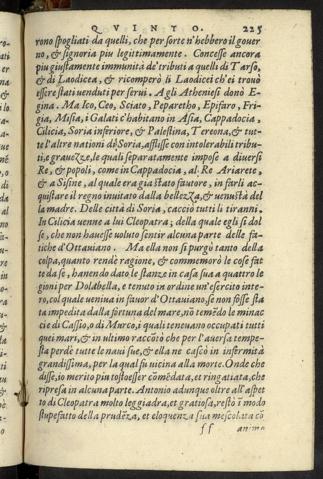 QVINTO. 225
rono spogliati da quelli, che per sorte n'hebbero il gouer
no, & signoria piu legittimamente. Concesse ancora
piu giustamente immunità de' tributi a quelli di Tarso,
& di Laodicea, & ricomperò li Laodicei ch'ei trouò
essere stati uenduti per serui. Agli Atheniesi donò E-
gina. Ma Ico, Ceo, Sciato, Peparetho, Epifaro, Fri-
gia, Misia, i Galati c'habitano in Asia, Cappadocia,
Cilicia, Soria inferiore, & Palestina, Tereona, & tut-
te l'altre nationi di Soria, afflisse con intolerabili tribu-
ti, grauezze, le quali separatamente impose a diuersi
Re, & popoli, come in Cappadocia, al Re Ariarete,
& a Sisine, al quale era gia stato fautore, in farli ac-
quistare il regno inuitato dalla bellezza, & uenustà del
la madre. Delle città di Soria, cacciò tutti li tiranni.
In Cilicia uenne a lui Cleopatra; della quale egli si dol
se, che non hauesse uoluto sentir alcuna parte delle fa-
tiche d'Ottauiano. Ma ella non si purgò tanto della
colpa, quanto rendè ragione, & commemorò le cose fat
te da se, hauendo dato le stanze in casa sua a quattro le
gioni per Dolabella, e tenuto in ordine un'esercito inte-
ro, col quale ueniua in fauor d'Ottauiano, se non fosse sta
ta impedita dalla fortuna del mare, nō temēdo le minac
cie di Cassio, o di Murco, i quali teneuano occupati tutti
quei mari, & in ultimo raccōtò che per l'auersa tempe-
sta perdè tutte le naui sue, & ella ne cascò in infermità
grandissima, per la qual fu uicina alla morte. Onde che
disse, io merito piu tosto esser cōmēdata, et ringratiata, che
ripresa in alcuna parte. Antonio adunque oltre all'aspet
to di Cleopatra molto leggiadra, et gratiosa, restò ī modo
stupefatto della prudēza, et eloquenza sua mescolata cō
ff animo